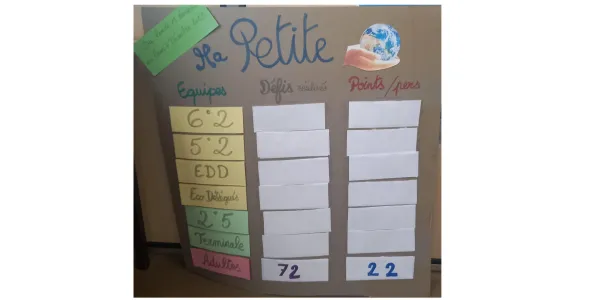 Ma Petite
Equipes Défis réalisés Points/pers
6°2
5°2
EDD
Eco Délégués
2°5
Terminale
Adultes 72 22